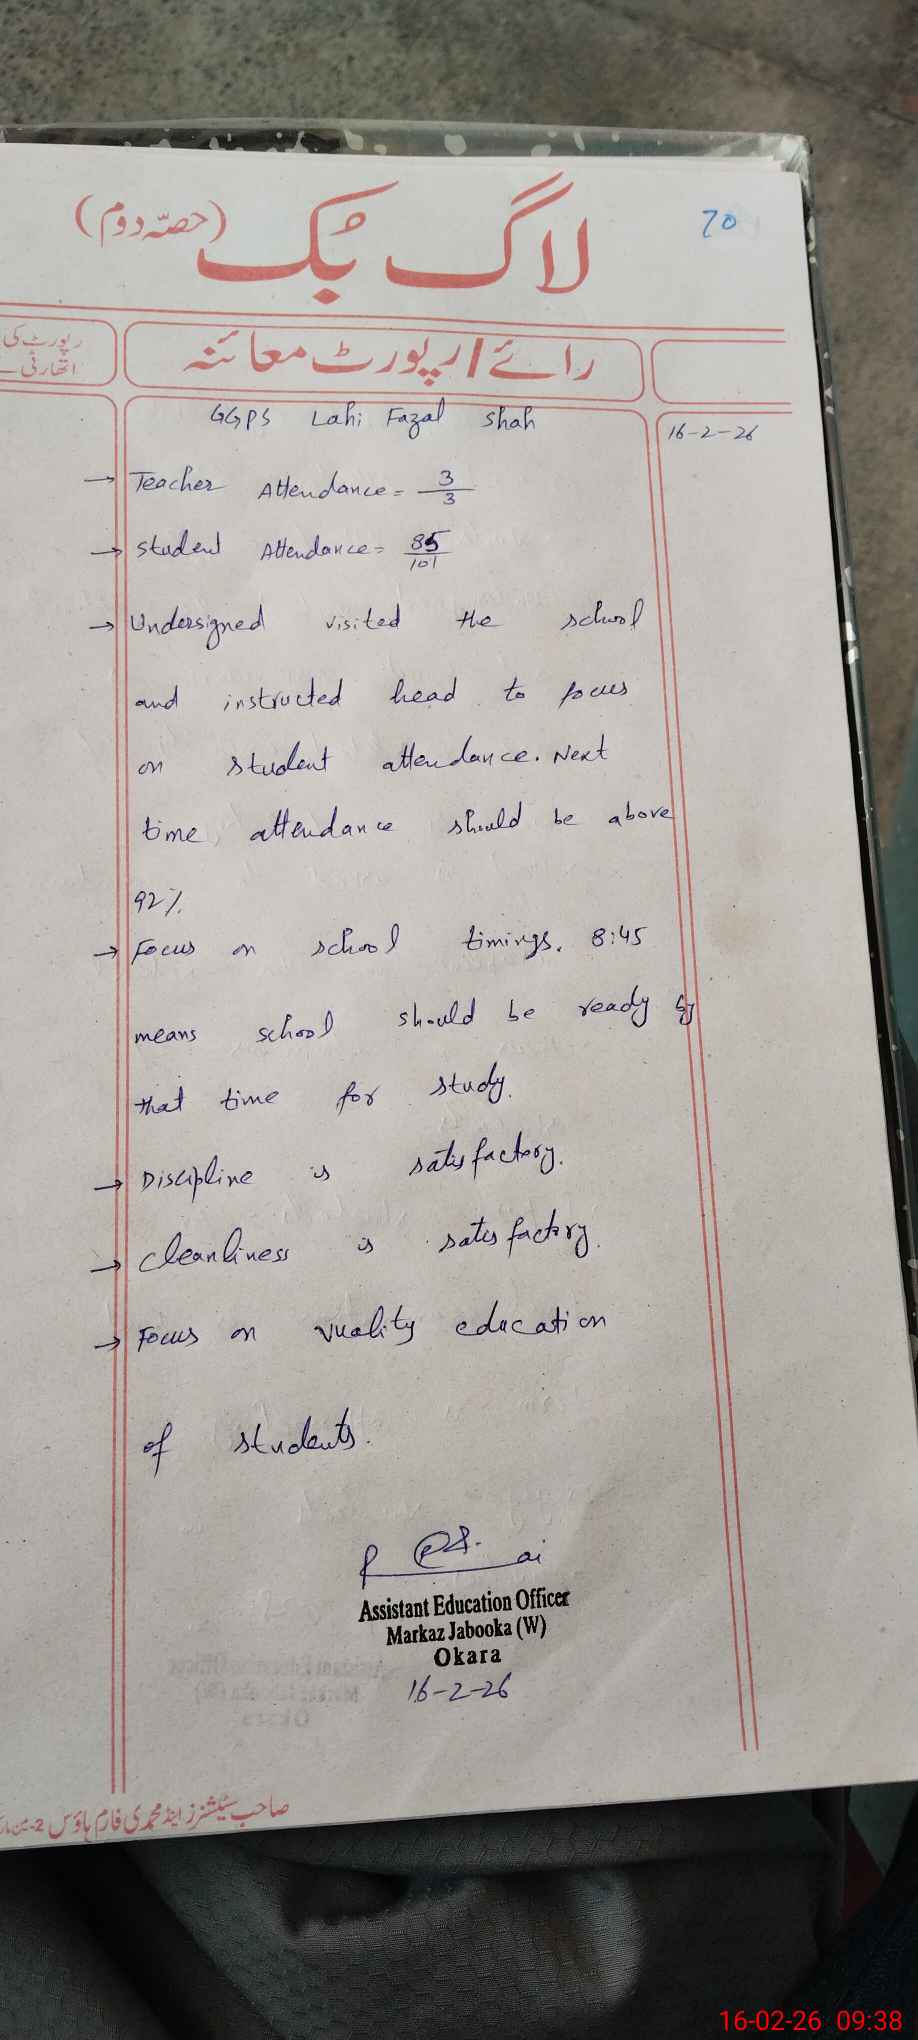 لاگ بُک (حصّہ دوم)
70
رپورٹ کی
اتھارٹی
رائے / رپورٹ معائنہ
GGPS Lahi Fazal Shah
16-2-26
→ Teacher Attendance = 3/3
→ Student Attendance = 85/101
→ Undersigned visited the school
and instructed head to focus
on student attendance. Next
time attendance should be above
92%.
→ Focus on school timings. 8:45
means school should be ready by
that time for study.
→ Discipline is satisfactory.
→ Cleanliness is satisfactory.
→ Focus on quality education
of students.
Assistant Education Officer
Markaz Jabooka (W)
Okara
16-2-26
صاحب سٹیشنرز اینڈ محمدی فارم ہاؤس 2-
16-02-26 09:38